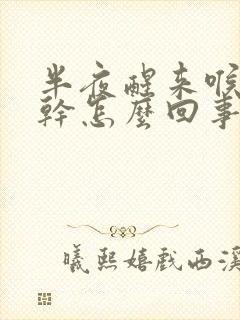 半夜醒来喉
幹怎麽回事
曦熙嬉戲西溪